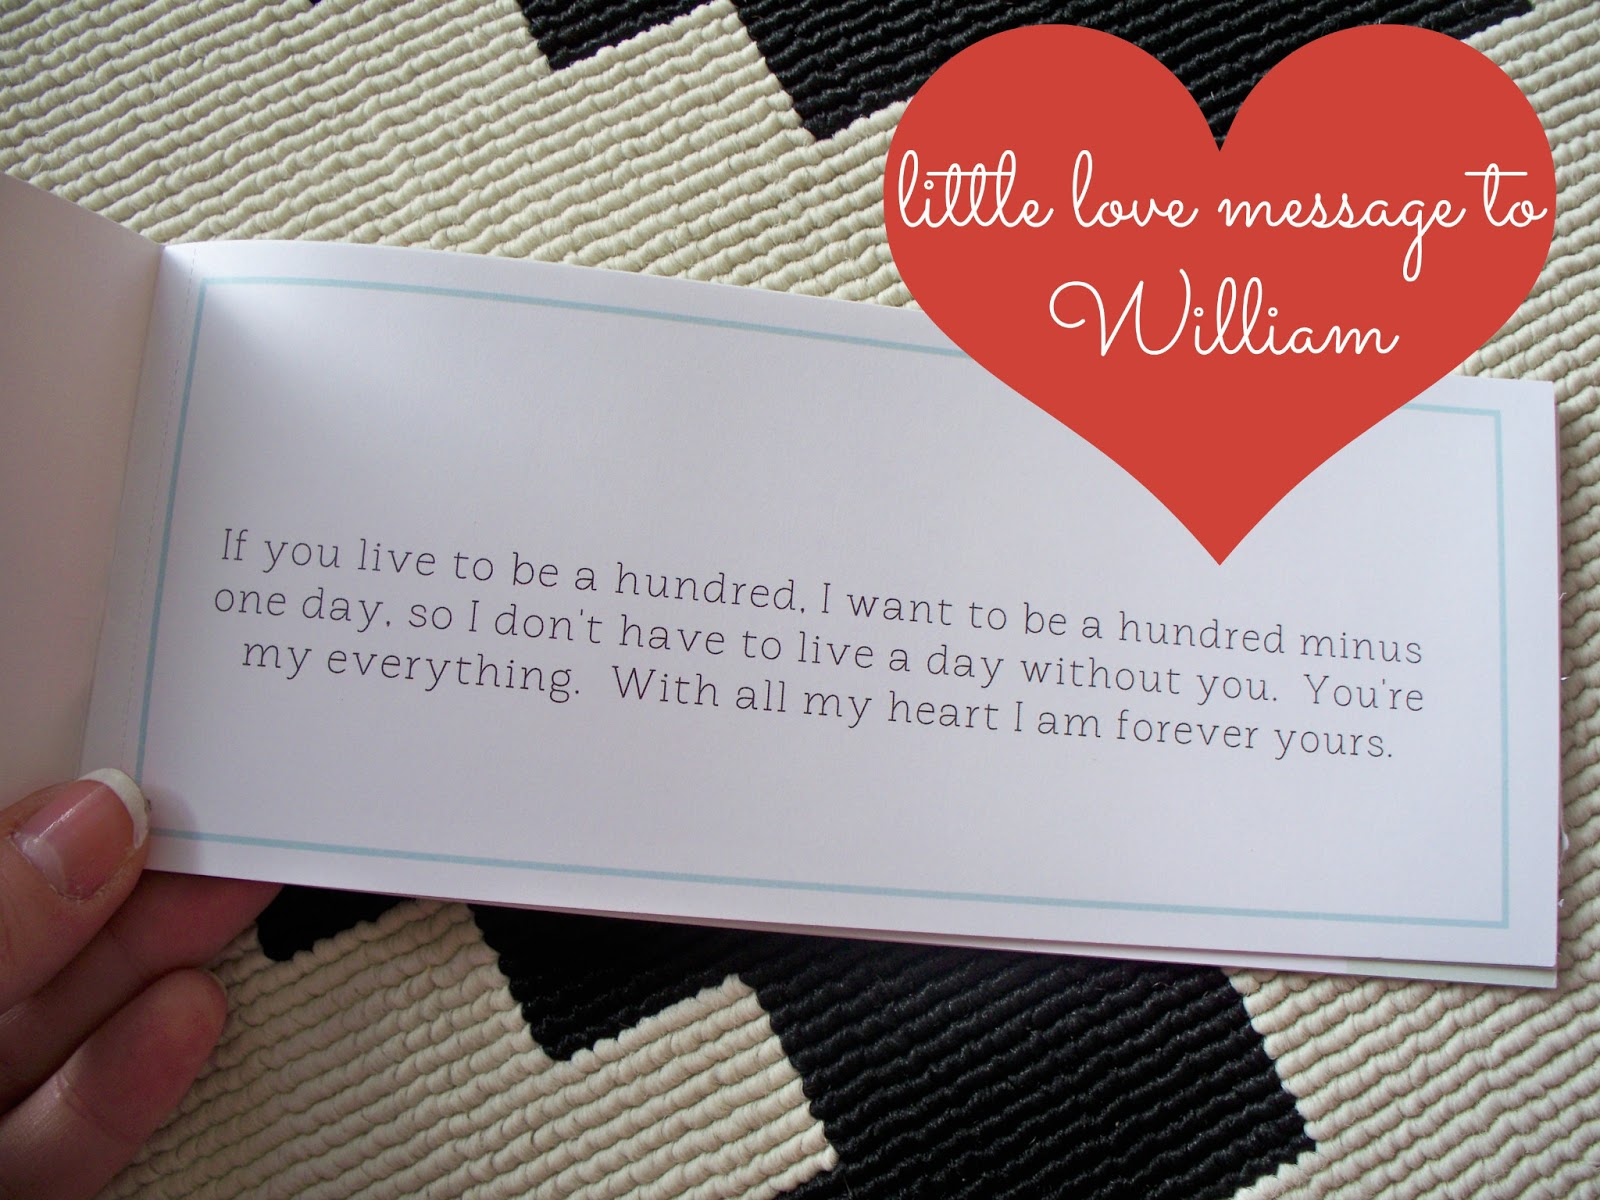 little love message to
William
If you live to be a hundred, I want to be a hundred minus
one day, so I don't have to live a day without you.  You're
my everything.  With all my heart I am forever yours.